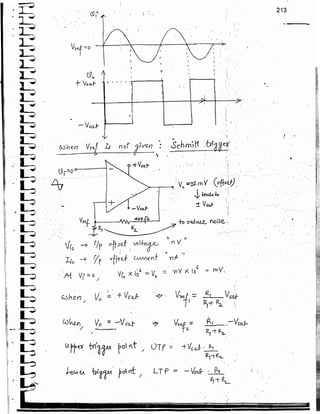 213
Vi
Vref = 0
Vo
+ Vsat
- Vsat
when Vref is not given : Schmitt trigger
Vi = 0
+ Vsat
Vo = ±mV (offset)
↓ tends to
± Vsat
- Vsat
Vref
R1
R2
to reduce noise.
Vio → i/p offset voltage "nV"
Iio → i/p offset current "nA"
At Vi = 0, Vio × 10⁶ = Vo = nV × 10⁶ = mV.
when, Vo = + Vsat ⇒ Vref = R1 / R1 + R2 Vsat
when, Vo = -Vsat ⇒ Vref = R1 / R1 + R2 -Vsat
upper trigger point, UTP = +Vsat . R1 / R1 + R2
Lower trigger point, LTP = -Vsat . R1 / R1 + R2